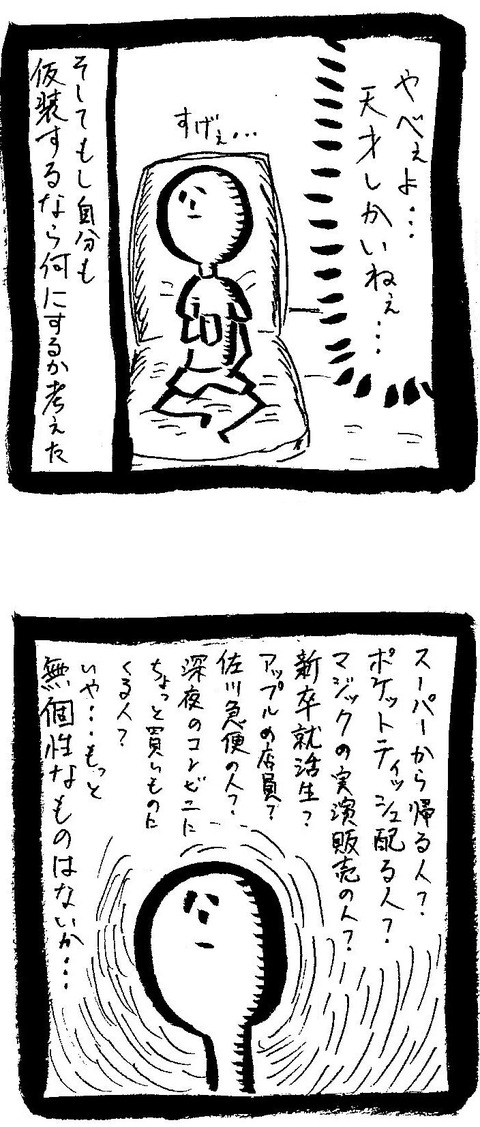 やべぇよ…
天才しかいねぇ…
すげぇ…
そしてもし自分も
仮装するなら何にするか考えた
スーパーから帰る人?
ポケットティッシュ配る人?
マジックの実演販売の人?
新卒就活生?
アップルの店員?
佐川急便の人?
深夜のコンビニに
ちょっと買いものに
くる人?
いや…もっと
無個性なものはないか…